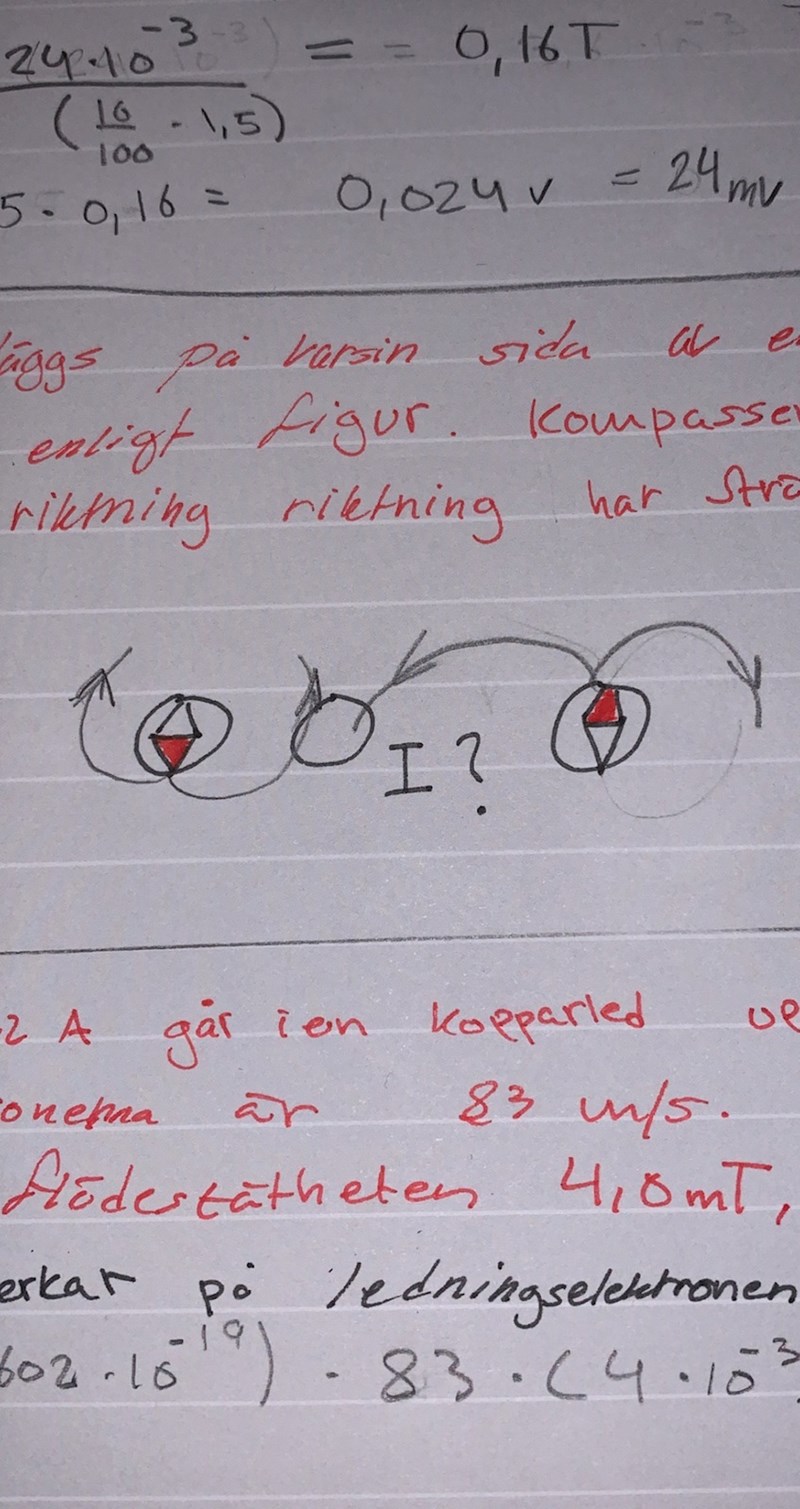 24·10⁻³ = = 0,16T
(16/100 · 1,5)
5 · 0,16 = 0,024 v = 24mv
äggs på varsin sida av e
enligt figur. Kompasse
riktning riktning har Strö
I?
2 A går i en kopparled
onerna är 83 m/s.
flödestätheten 4,0mT,
erkar på ledningselektronen
602 · 10⁻¹⁹) · 83 · (4 · 10⁻³